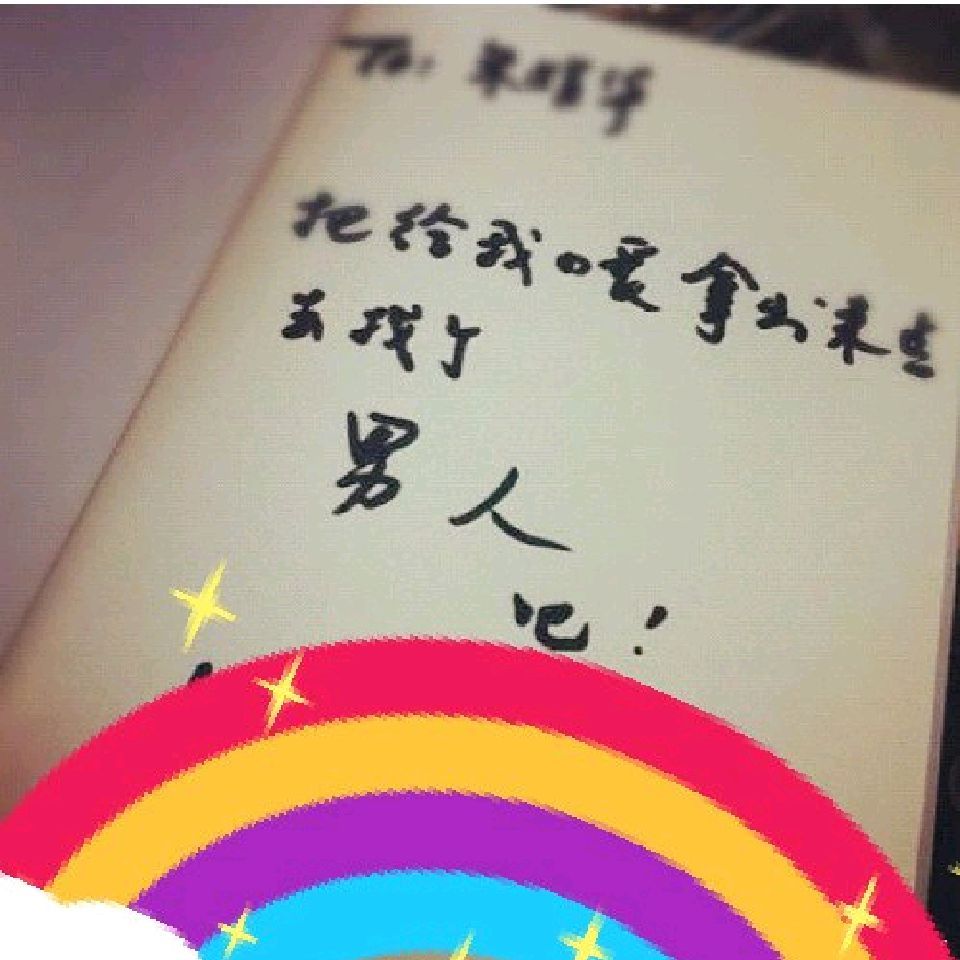 To:
把给我的爱拿出来些
去找个
男人
吧！